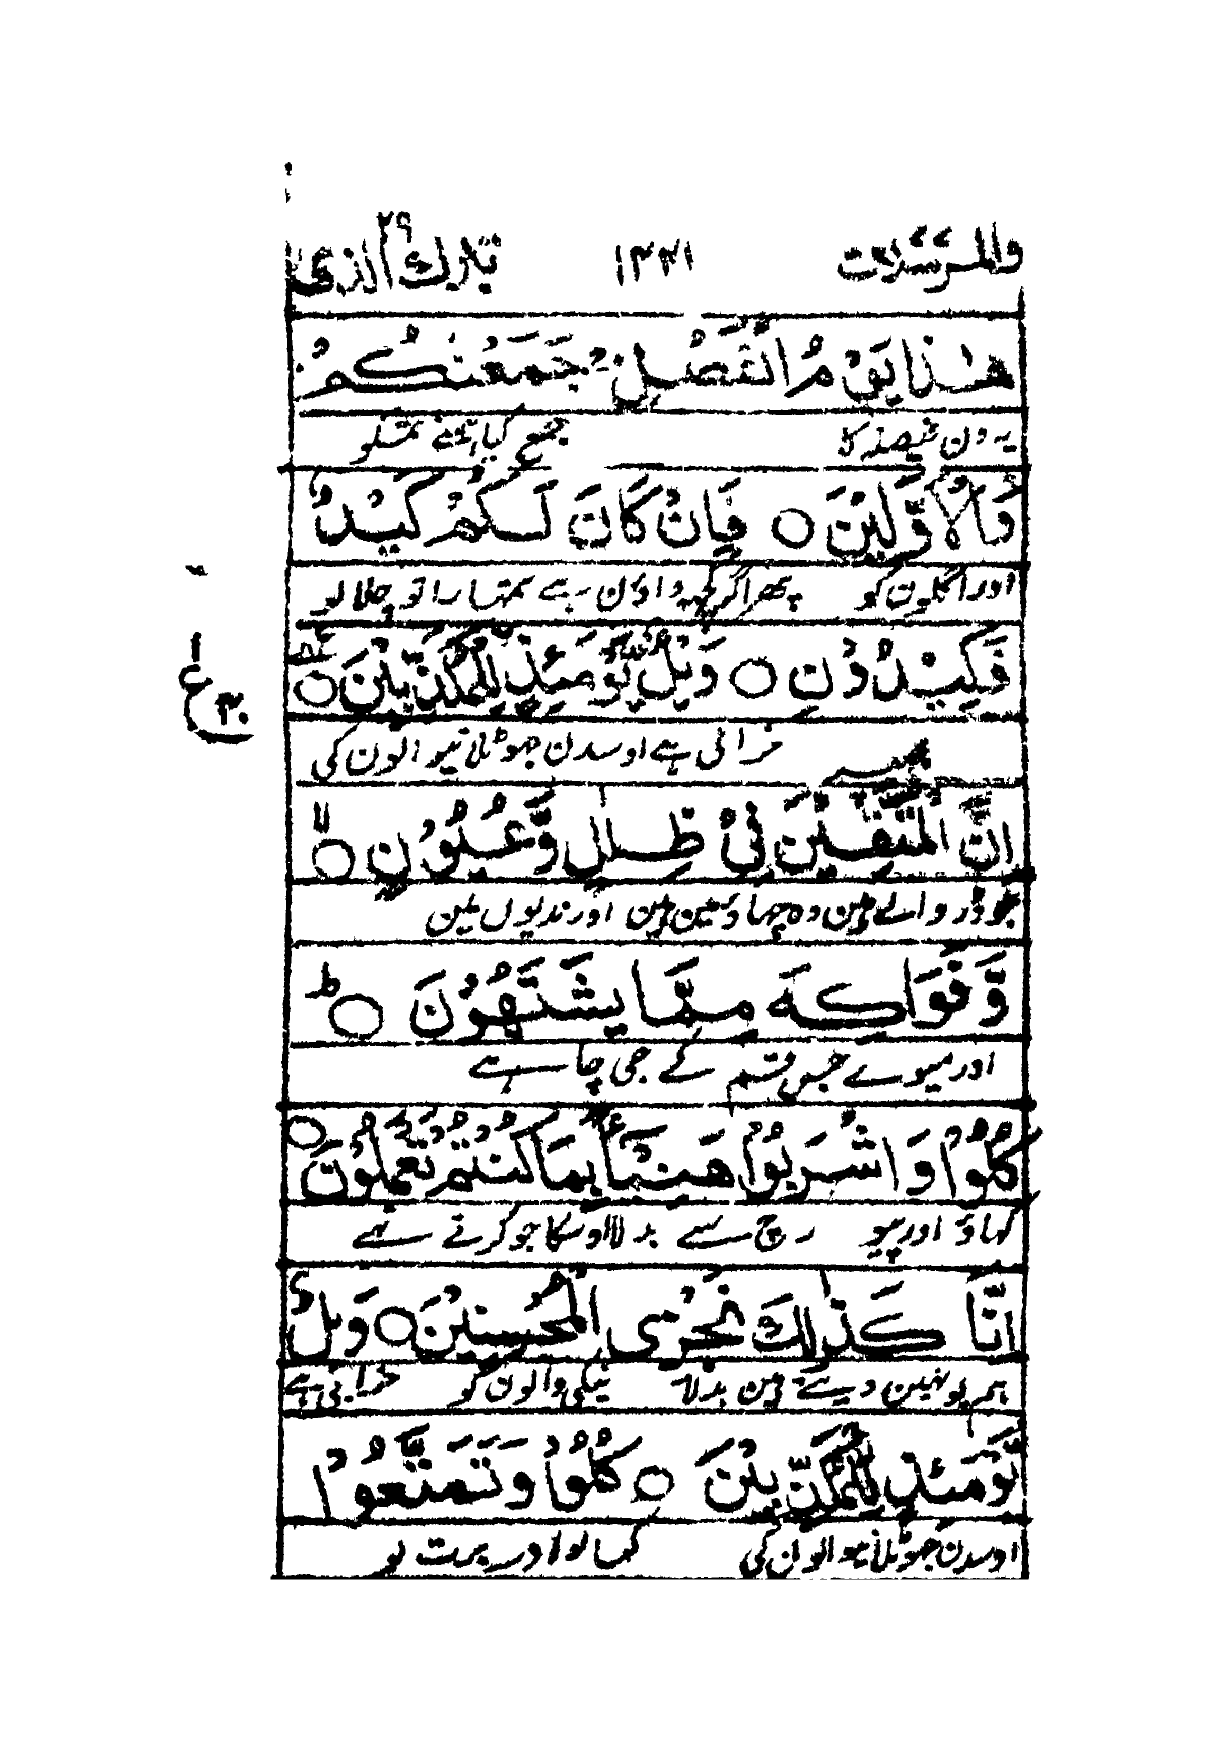 والمرسلات ١٢٢١ تبارك الذى ٢٩
هٰذَا يَوْمُ الْفَصْلِ ۚ جَمَعْنٰكُمْ
یہ دن فیصلہ کا جمع کیا ہمنے تمکو
وَالْاَوَّلِيْنَ ○ فَاِنْ كَانَ لَكُمْ كَيْدٌ
اور اگلون کو پھر اگر کچھ داؤن ہے تمہارا تو چلا لو
فَكِيْدُوْنِ ○ وَيْلٌ يَّوْمَئِذٍ لِّلْمُكَذِّبِيْنَ ○
خرابی ہے اوسدن جھوٹلانیوالون کی
اِنَّ الْمُتَّقِيْنَ فِيْ ظِلٰلٍ وَّعُيُوْنٍ ○ لا
جو ڈر والے ہین وہ چھاؤن مین ہین اور ندیون مین
وَّفَوَاكِهَ مِمَّا يَشْتَهُوْنَ ○ ط
اور میوے جس قسم کے جی چاہے
كُلُوْا وَاشْرَبُوْا هَنِيْٓـًٔا بِمَا كُنْتُمْ تَعْمَلُوْنَ ○
کھاؤ اور پیو رچ سے بدلا اوسکا جو کرتے تھے
اِنَّا كَذٰلِكَ نَجْزِى الْمُحْسِنِيْنَ ○ وَيْلٌ
ہم یونہین دیتے ہین بدلا نیکی والون کو خرابی ہے
يَّوْمَئِذٍ لِّلْمُكَذِّبِيْنَ ○ كُلُوْا وَتَمَتَّعُوْا
اوسدن جھوٹلانیوالون کی کھا لو اور برت لو